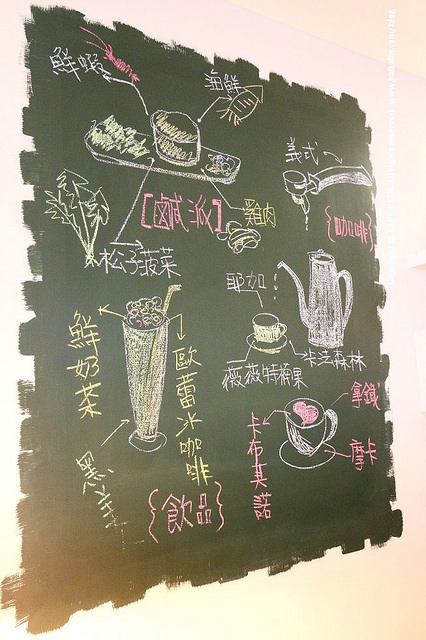 鮮蝦
海鮮
義式
[鹹派]
雞肉
{咖啡}
松子菠菜
耶加
鮮奶茶
歐蕾冰咖啡
薇薇特楠果
卡芝森林
拿鐵
卡布其諾
摩卡
{飲品}